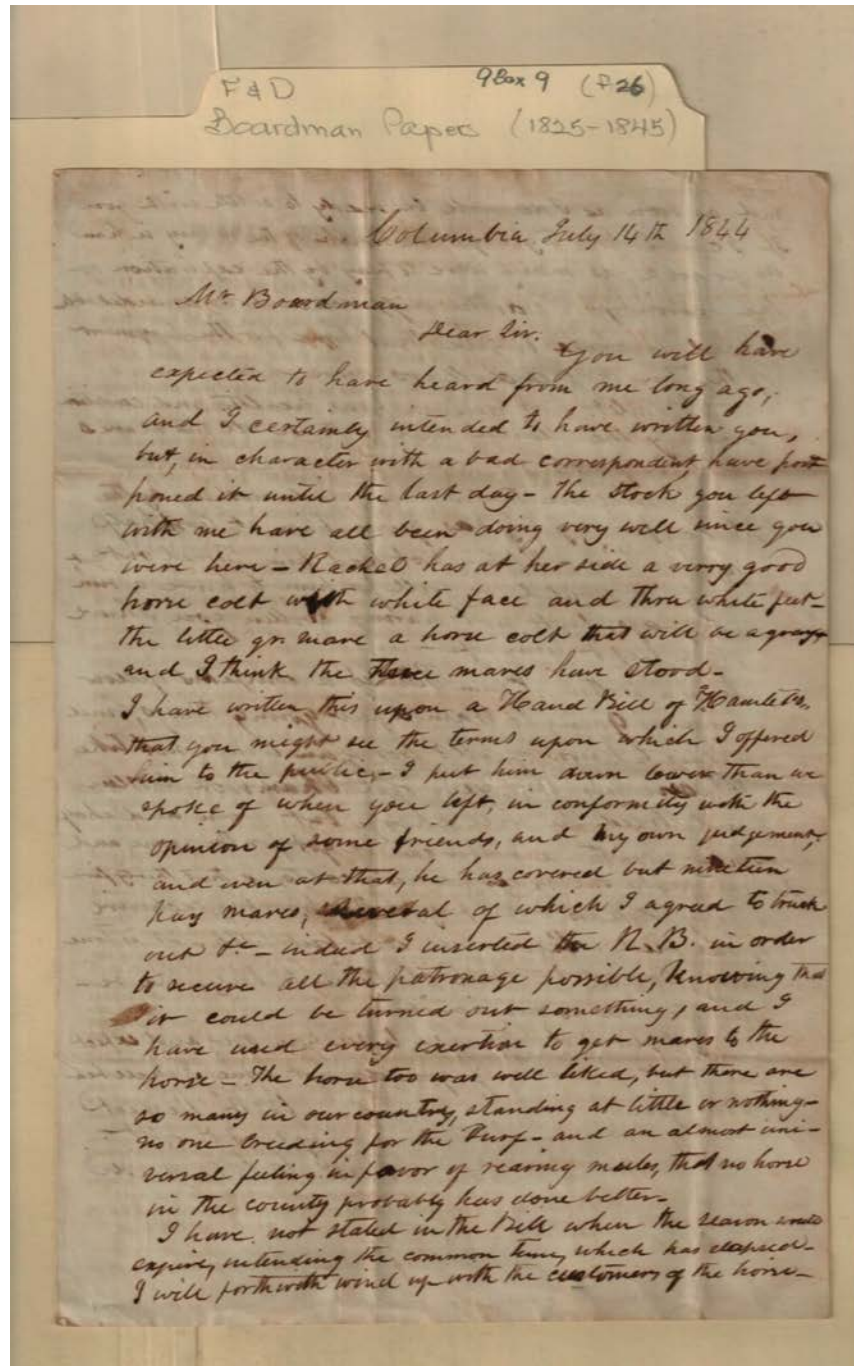 F & D Box 9 (f 26)
Boardman Papers (1825-1845)
Columbia July 14th 1844
Mr Boardman
Dear Sir.
You will have
expected to have heard from me long ago,
and I certainly intended to have written you,
but, in character with a bad correspondent, have post
poned it until the last day - The stock you left
with me have all been doing very well since you
were here - Rachel has at her side a verry good
horse colt with white face and three white feet -
the little gr. mare a horse colt that will be a gray
and I think the three mares have stood -
I have written this upon a Hand Bill of Hamlets,
that you might see the terms upon which I offered
him to the public, - I put him down lower than we
spoke of when you left, in conformity with the
opinion of some friends, and my own judgement,
and even at that, he has covered but nineteen
pay mares, several of which I agreed to
out &c - indeed I inserted the N. B. in order
to secure all the patronage possible, knowing that
it could be turned out something, and I
have used every exertion to get mares to the
horse - The horse too was well liked, but there are
so many in our country, standing at little or nothing -
no one breeding for the Turf - and an almost uni-
versal feeling in favor of rearing mules, that no horse
in the county probably has done better -
I have not stated in the Bill when the season would
expire, intending the common time, which has elapsed -
I will forthwith wind up with the customers of the horse -